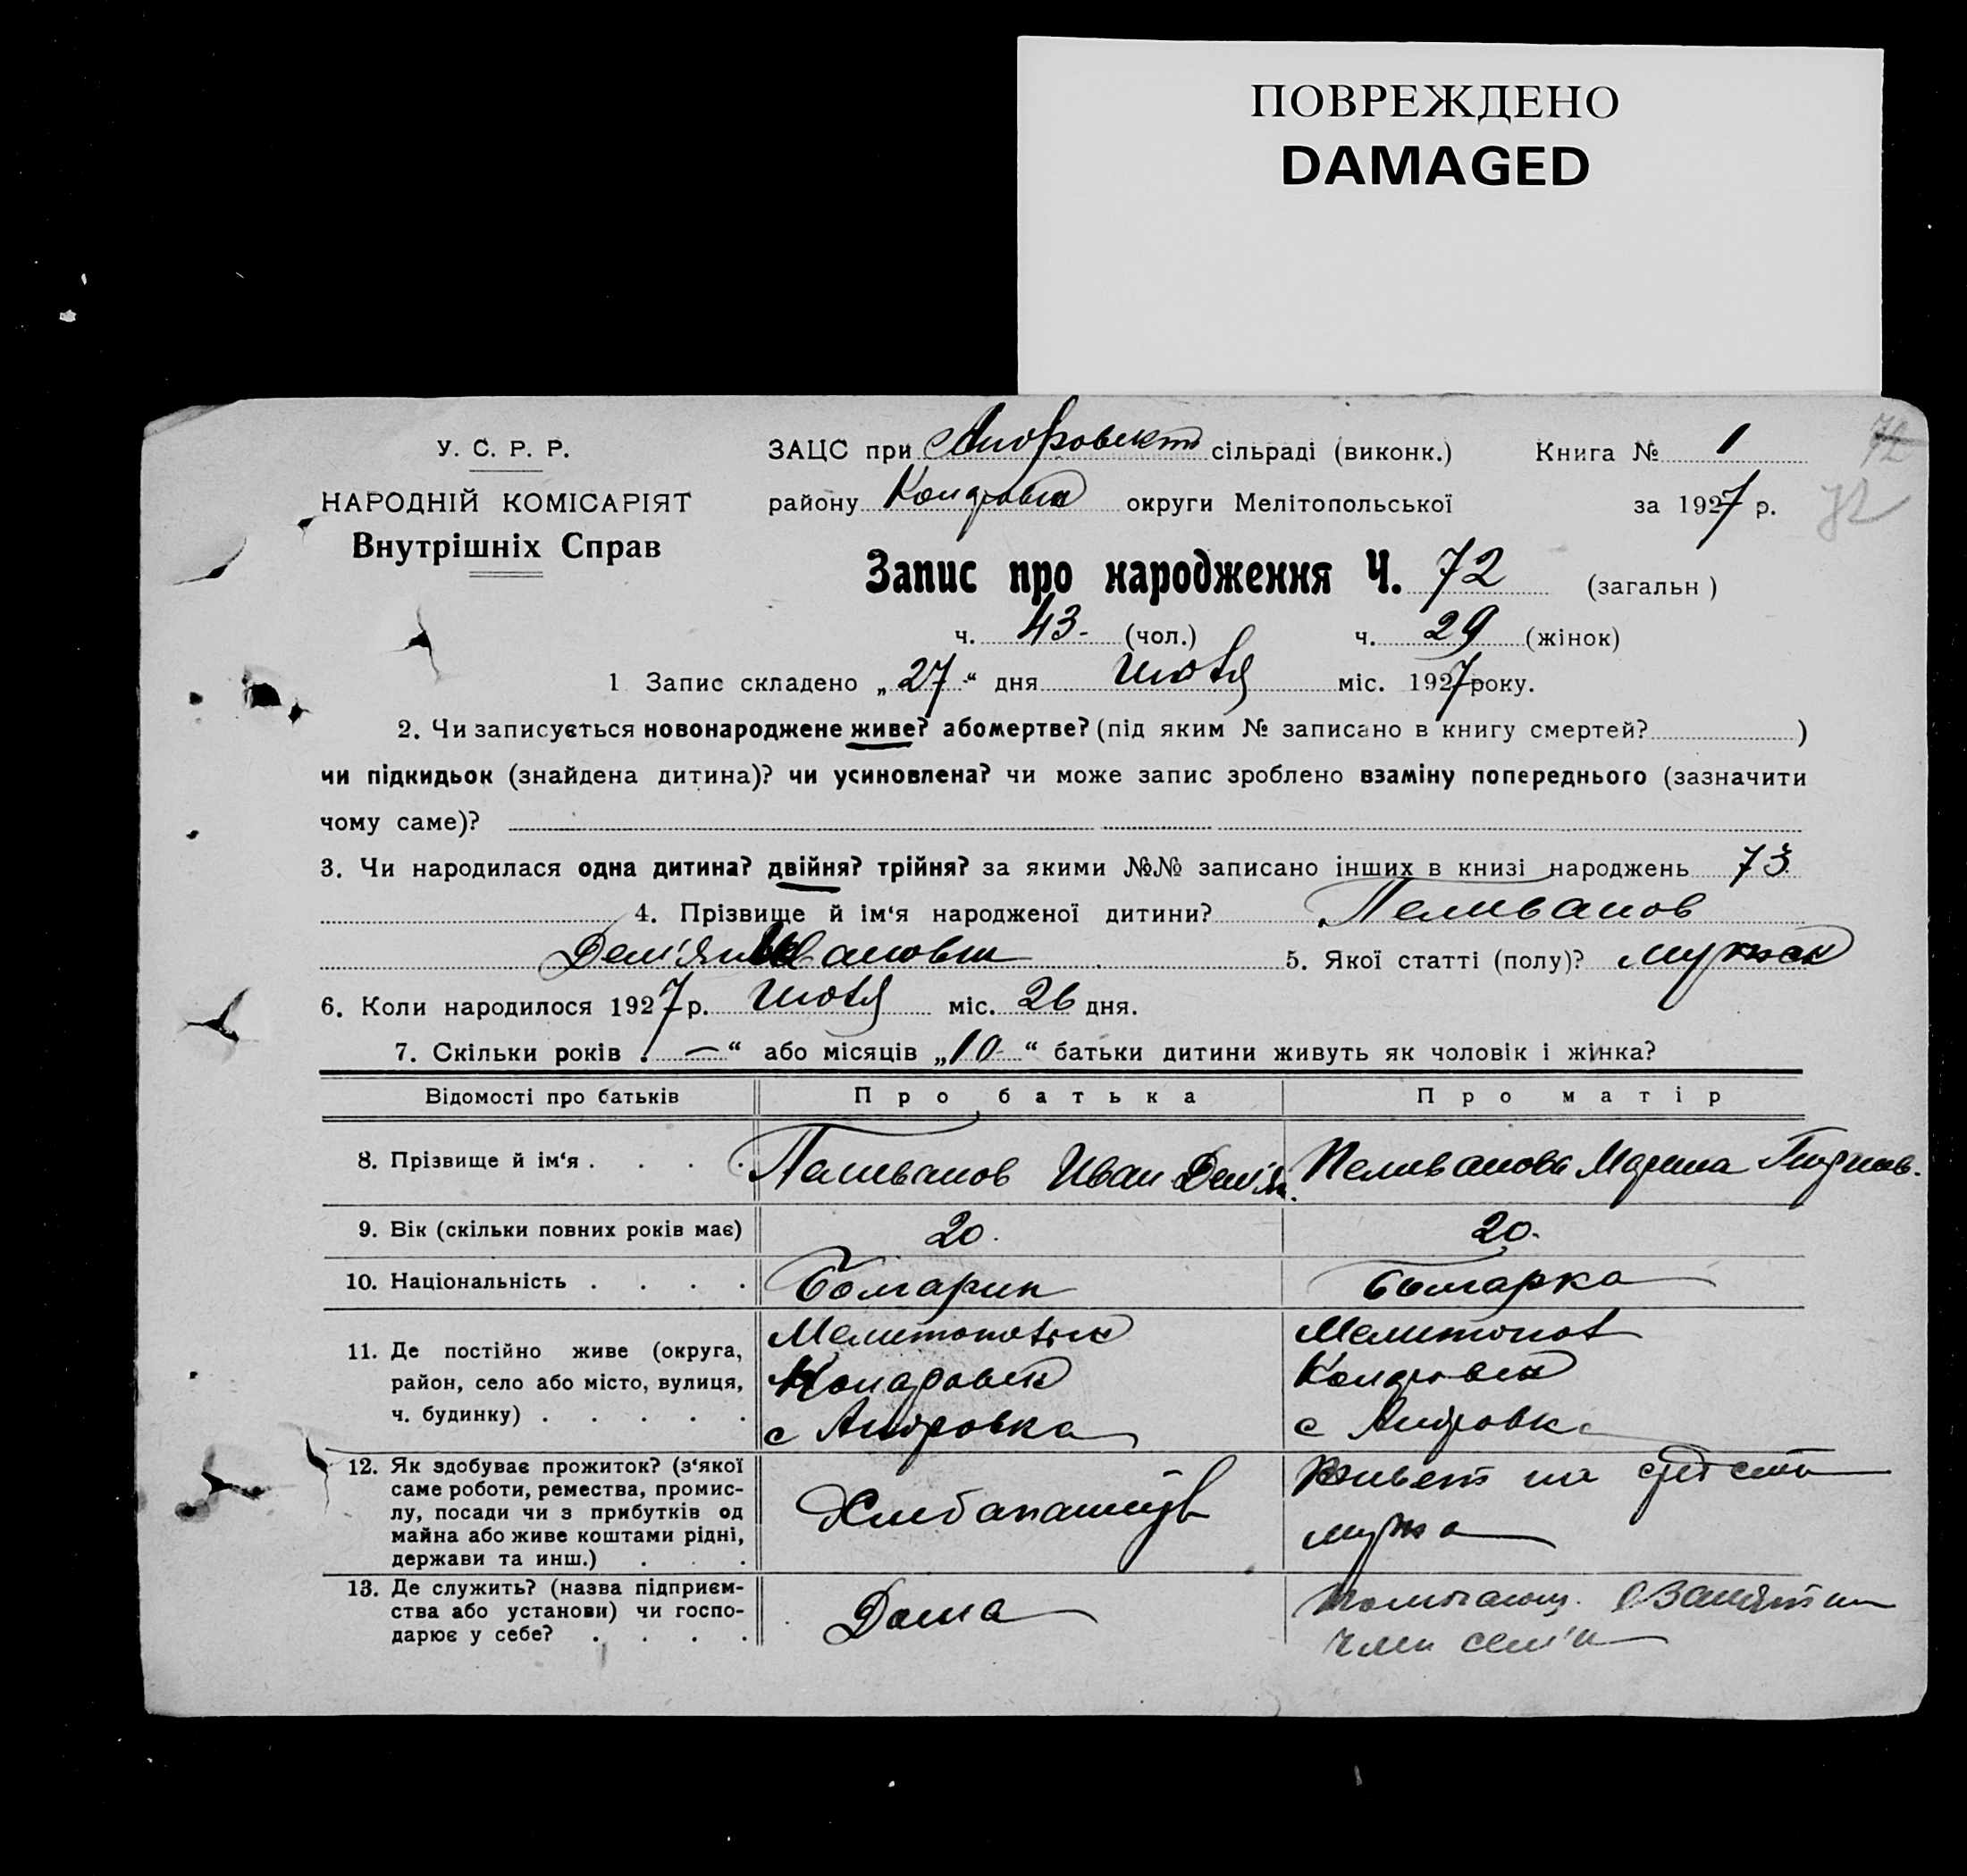 ПОВРЕЖДЕНО
DAMAGED
У. С. Р. Р.
НАРОДНІЙ КОМІСАРІЯТ
Внутрішніх Справ
ЗАЦС при сільраді (виконк.) Книга № 1
району округи Мелітопольської за 1927 р.
72
72
Запис про народження Ч. 72 (загальн)
ч. 43- (чол.) ч. 29 (жінок)
1 Запис складено „27“ дня міс. 1927 року.
2. Чи записується новонароджене живе? або мертве? (під яким № записано в книгу смертей? )
чи підкидьок (знайдена дитина)? чи усиновлена? чи може запис зроблено взаміну попереднього (зазначити
чому саме)?
3. Чи народилася одна дитина? двійня? трійня? за якими №№ записано інших в книзі народжень 73
4. Прізвище й ім‘я народженої дитини? Пеливанов
Дем'ян Иванович 5. Якої статті (полу)? мужск
6. Коли народилося 1927 р. міс. 26 дня.
7. Скільки років „—“ або місяців „10“ батьки дитини живуть як чоловік і жінка?
Відомості про батьків Про батька Про матір
8. Прізвище й ім‘я . . . . Пеливанов Иван Дем'ян. Пеливанова Марина
9. Вік (скільки повних років має) 20. 20.
10. Національність . . . . Болгарин болгарка
11. Де постійно живе (округа,
район, село або місто, вулиця,
ч. будинку) . . . . .
Мелитопольск
с Андровка
Мелитопол
с Андровка
12. Як здобуває прожиток? (з‘якої
саме роботи, ремества, промис-
лу, посади чи з прибутків од
майна або живе коштами рідні,
держави та инш.) . . .
Живет на средства
мужа
13. Де служить? (назва підприєм-
ства або установи) чи госпо-
дарює у себе? . . . .
Дома
член сем'и